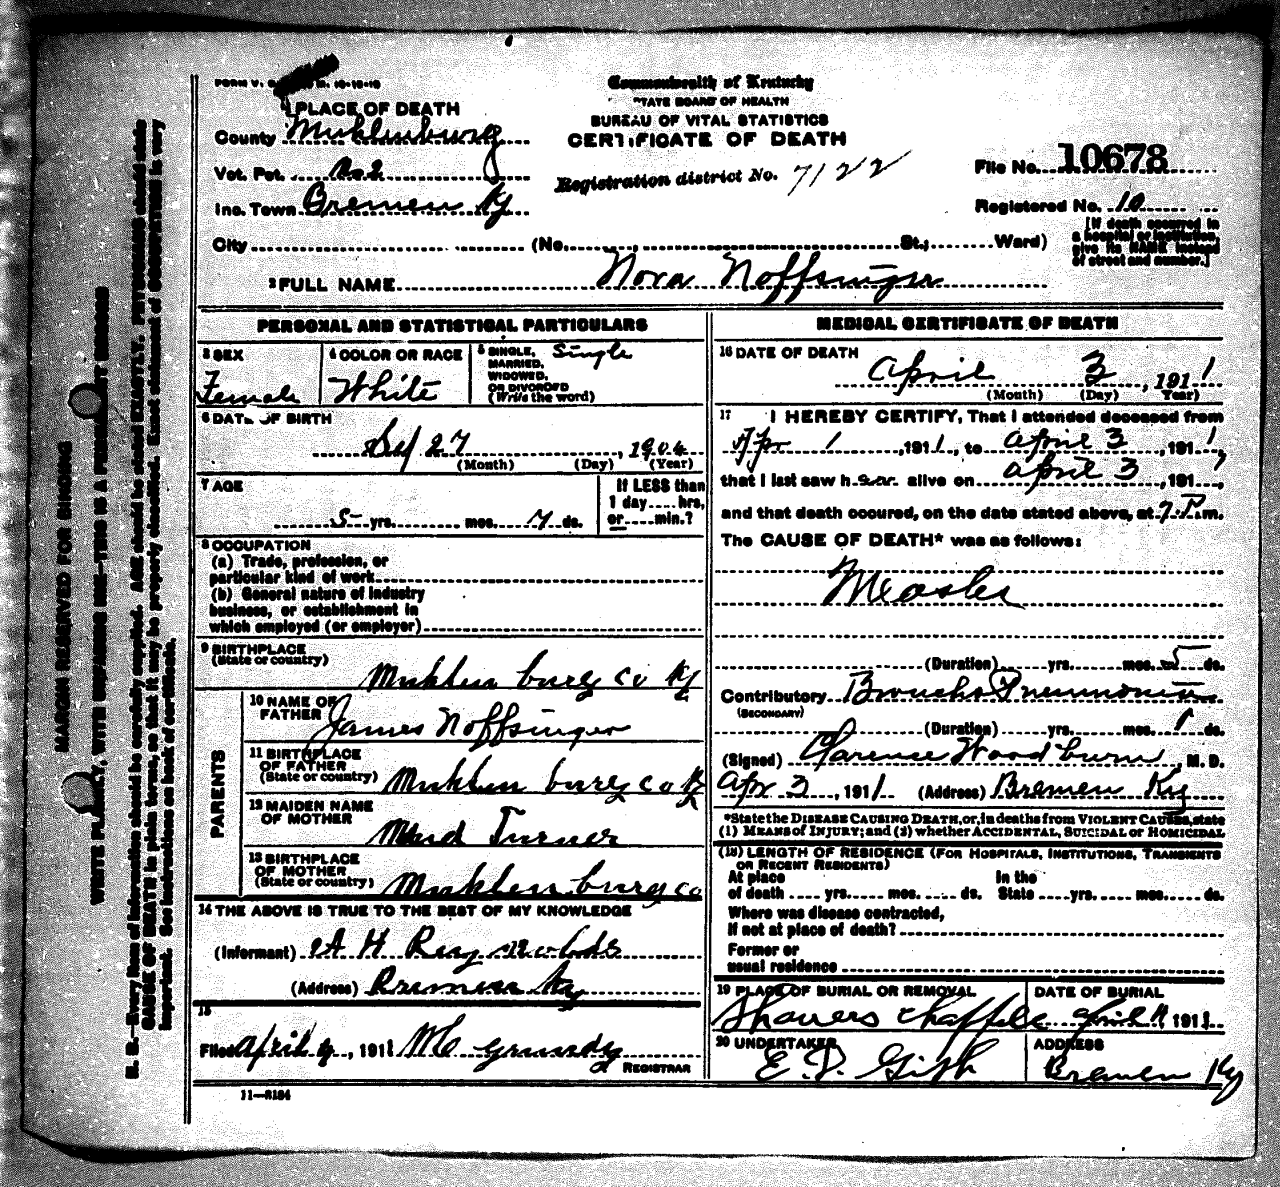 FORM V. S. 10-10-10
Commonwealth of Kentucky
STATE BOARD OF HEALTH
BUREAU OF VITAL STATISTICS
CERTIFICATE OF DEATH
1 PLACE OF DEATH
County Muhlenburg
Vot. Pct. No 2
Inc. Town Bremen Ky
City (No. St.; Ward)
Registration district No. 7122
File No. 10678
Registered No. 10
[If death occurred in a hospital or institution, give its NAME instead of street and number.]
2 FULL NAME Nora Noffsinger
PERSONAL AND STATISTICAL PARTICULARS
3 SEX Female
4 COLOR OR RACE White
5 SINGLE, MARRIED, WIDOWED, OR DIVORCED (Write the word) Single
6 DATE OF BIRTH
Sep 27, 1904
(Month) (Day) (Year)
7 AGE
5 yrs. mos. 7 ds.
If LESS than 1 day hrs, or min.?
8 OCCUPATION
(a) Trade, profession, or
particular kind of work
(b) General nature of industry
business, or establishment in
which employed (or employer)
9 BIRTHPLACE
(State or country) Muhlen burg co Ky
PARENTS
10 NAME OF FATHER James Noffsinger
11 BIRTHPLACE OF FATHER (State or country) Muhlen burg co Ky
12 MAIDEN NAME OF MOTHER Turner
13 BIRTHPLACE OF MOTHER (State or country) Muhlen burg co
14 THE ABOVE IS TRUE TO THE BEST OF MY KNOWLEDGE
(Informant) A H Reynolds
(Address) Bremen Ky
15
Filed April, 1911 Mc grundy
REGISTRAR
11—5184
MEDICAL CERTIFICATE OF DEATH
16 DATE OF DEATH
April 3, 1911
(Month) (Day) (Year)
17 I HEREBY CERTIFY, That I attended deceased from
Apr 1, 1911, to April 3, 1911,
that I last saw her alive on April 3, 191,
and that death occured, on the date stated above, at 7 P.m.
The CAUSE OF DEATH* was as follows:
Measles
(Duration) yrs. mos. 5 ds.
Contributory Broncho Pneumonia
(SECONDARY)
(Duration) yrs. mos. 1 ds.
(Signed) Clarence Woodburn, M. D.
Apr 3, 1911 (Address) Bremen Ky
*State the DISEASE CAUSING DEATH, or, in deaths from VIOLENT CAUSES, state
(1) MEANS OF INJURY; and (2) whether ACCIDENTAL, SUICIDAL or HOMICIDAL
(18) LENGTH OF RESIDENCE (FOR HOSPITALS, INSTITUTIONS, TRANSIENTS
OR RECENT RESIDENTS)
At place In the
of death yrs. mos. ds. State yrs. mos. ds.
Where was disease contracted,
if not at place of death?
Former or
usual residence
19 PLACE OF BURIAL OR REMOVAL DATE OF BURIAL
Shavers Chappel April 4 1911
20 UNDERTAKER ADDRESS
E. Gish Bremen Ky
MARGIN RESERVED FOR BINDING
WRITE PLAINLY, WITH UNFADING INK—THIS IS A PERMANENT RECORD
N. B.—Every item of information should be carefully supplied. AGE should be stated EXACTLY. PHYSICIANS should state
CAUSE OF DEATH in plain terms, so that it may be properly classified. Exact statement of OCCUPATION is very
important. See instructions on back of certificate.